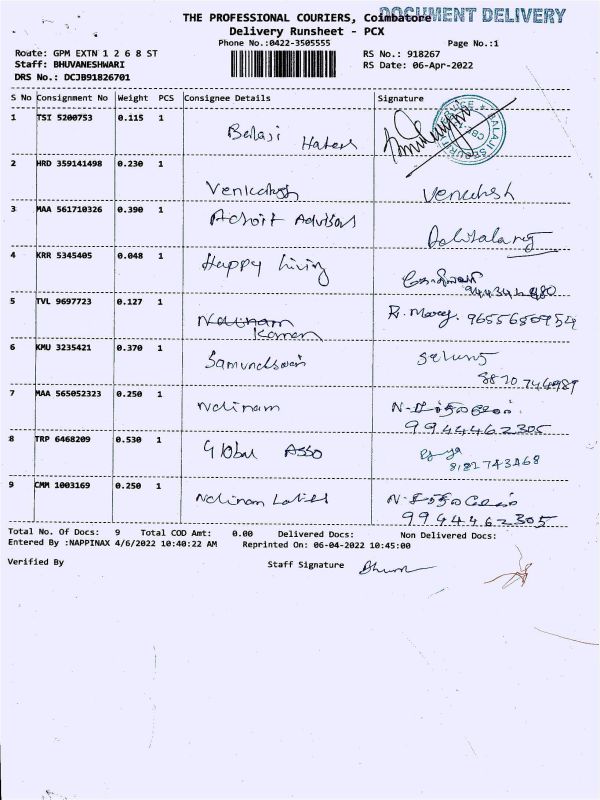 THE PROFESSIONAL COURIERS, Coimbatore
DOCUMENT DELIVERY
Delivery Runsheet - PCX
Phone No.:0422-3505555
Page No.:1
Route: GPM EXTN 1 2 6 8 ST
RS No.: 918267
Staff: BHUVANESHWARI
RS Date: 06-Apr-2022
DRS No.: DCJB91826701
S No Consignment No Weight PCS Consignee Details Signature
1 TSI 5200753 0.115 1 Balaji
2 HRD 359141498 0.230 1 Venkatesh Venkatesh
3 MAA 561710326 0.390 1 Adroit Advisors
4 KRR 5345405 0.048 1 Happy living
5 TVL 9697723 0.127 1 Nalinam R. 9655650954
6 KMU 3235421 0.370 1
8870744989
7 MAA 565052323 0.250 1 Nalinam N-
9944462305
8 TRP 6468209 0.530 1 Global Asso
8182743468
9 CMM 1003169 0.250 1 Nalinam N-
9944462305
Total No. Of Docs: 9 Total COD Amt: 0.00 Delivered Docs: Non Delivered Docs:
Entered By :NAPPINAX 4/6/2022 10:40:22 AM Reprinted On: 06-04-2022 10:45:00
Verified By Staff Signature